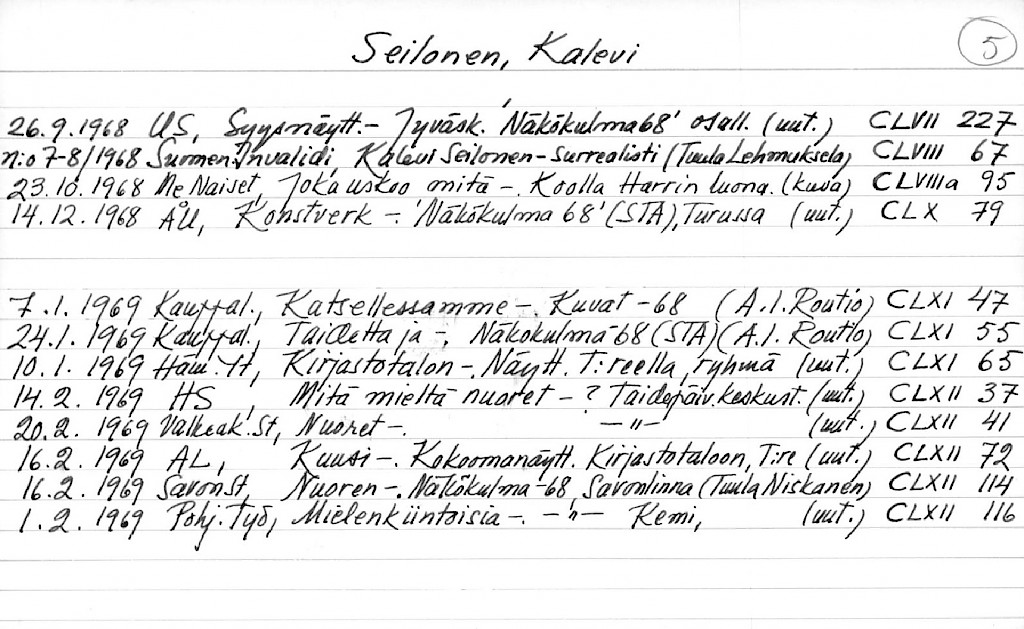 Seilonen, Kalevi
5
26.9.1968 US, Syysnäytt.- Jyväsk. 'Näkökulma68' osall. (uut.) CLVII 227
n:o 7-8/1968 Suomen Invalidi, Kalevi Seilonen - Surrealisti (Tuula Lehmuksela) CLVIII 67
23.10.1968 Me Naiset, Joka uskoo mitä -. Koolla Harrin luona. (kuva) CLVIIIa 95
14.12.1968 ÅU, Konstverk -. 'Näkökulma 68' (STA), Turussa (uut.) CLX 79
7.1.1969 Kauppal., Katsellessamme -. Kuvat -68 (A.I. Routio) CLXI 47
24.1.1969 Kauppal., Taidetta ja -, Näkökulma-68 (STA) (A.I. Routio) CLXI 55
10.1.1969 Häm. Yt, Kirjastotalon -. Näytt. T:reella, ryhmä (uut.) CLXI 65
14.2.1969 HS, Mitä mieltä nuoret - ? Taidepäiv. keskust. (uut.) CLXII 37
20.2.1969 Valkeak. St, Nuoret -. -"- (uut.) CLXII 41
16.2.1969 AL, Kuusi -. Kokoomanäytt. Kirjastotaloon, T:re (uut.) CLXII 72
16.2.1969 SavonSt, Nuoren -. Näkökulma-68 Savonlinna (Tuula Niskanen) CLXII 114
1.2.1969 Pohj. Työ, Mielenkiintoisia -. -"- Kemi, (uut.) CLXII 116